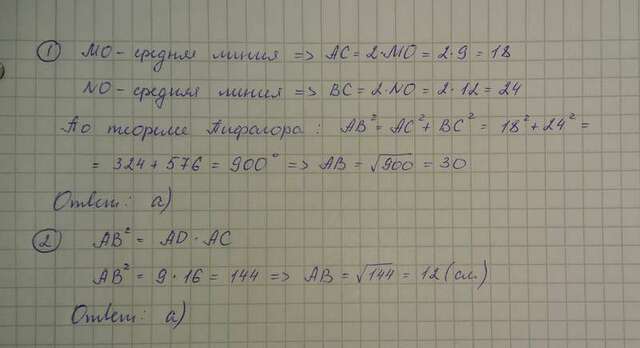 1 MO - средняя линия => AC = 2·MO = 2·9 = 18
NO - средняя линия => BC = 2·NO = 2·12 = 24
По теореме Пифагора: AB² = AC² + BC² = 18² + 24² =
= 324 + 576 = 900° => AB = √900 = 30
Ответ: а)
2 AB² = AD · AC
AB² = 9 · 16 = 144 => AB = √144 = 12 (см.)
Ответ: а)